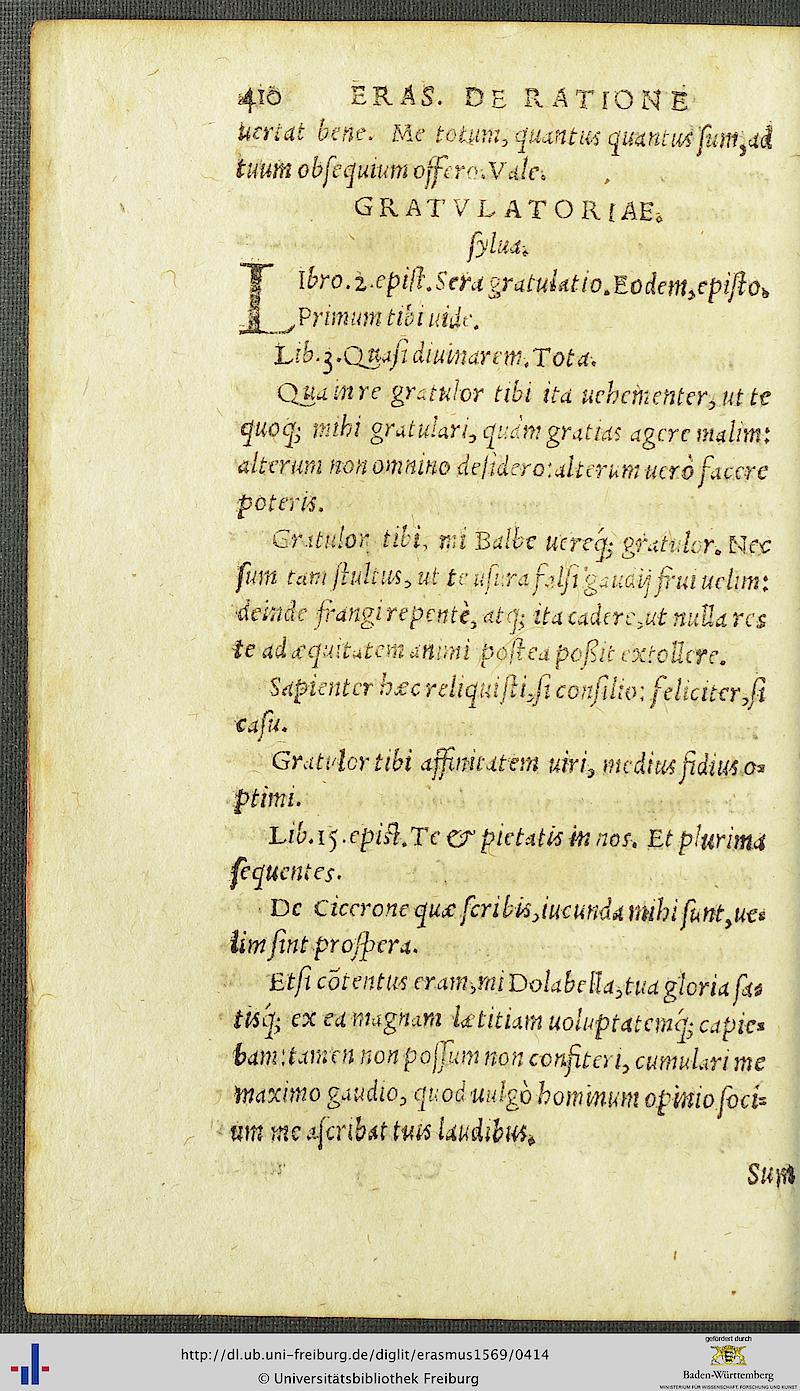 410 ERAS. DE RATIONE
uertat bene. Me totum, quantus quantus ſum, ad
tuum obſequium offero. Vale.
GRATVLATORIAE.
ſylua.
LIbro. 2. epiſt. Sera gratulatio. Eodem, epiſto.
Primum tibi uide.
Lib. 3. Quaſi diuinarem. Tota.
Qua in re gratulor tibi ita uehementer, ut te
quoq; mihi gratulari, quàm gratias agere malim:
alterum non omnino deſidero: alterum uerò facere
poteris.
Gratulor tibi, mi Balbe uereq́; gratulor. Nec
ſum tam ſtultus, ut te uſura falſi gaudij frui uelim:
deinde frangi repentè, atq; ita cadere, ut nulla res
te ad æquitatem animi poſtea poßit extollere.
Sapienter hæc reliquiſti, ſi conſilio: feliciter, ſi
caſu.
Gratulor tibi affinitatem uiri, medius fidius o-
ptimi.
Lib. 15. epiſt. Te & pietatis in nos. Et plurima
ſequentes.
De Cicerone quæ ſcribis, iucunda mihi ſunt, ue-
lim ſint proſpera.
Etſi cõtentus eram, mi Dolabella, tua gloria ſa-
tisq́; ex ea magnam lætitiam uoluptatemq́; capie-
bam: tamen non poſſum non confiteri, cumulari me
maximo gaudio, quod uulgò hominum opinio ſoci-
um me aſcribat tuis laudibus.
Sum
http://dl.ub.uni-freiburg.de/diglit/erasmus1569/0414
© Universitätsbibliothek Freiburg
gefördert durch
Baden-Württemberg
MINISTERIUM FÜR WISSENSCHAFT, FORSCHUNG UND KUNST